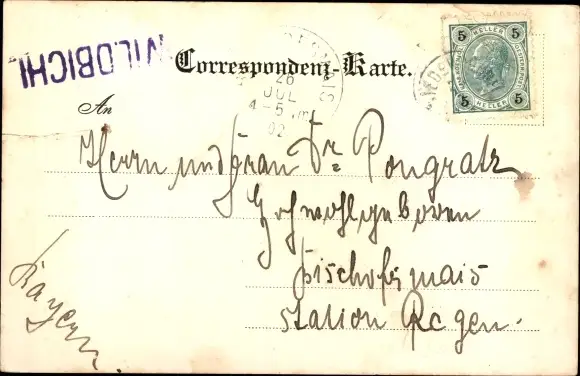 WILDBICHL
Correspondenz-Karte.
26
JUL
4-5
02
5 HELLER 5
5 HELLER 5
An
Herrn und Frau Dr Pongratz
Hochwohlgeboren
Bischofsmais
Station Regen.
Bayern.